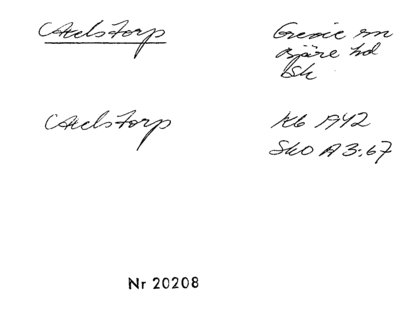 Axelstorp
Grevie sn
Bjäre hd
Sk
Axelstorp
Kb 1942
SkO A 3:67
Nr 20208